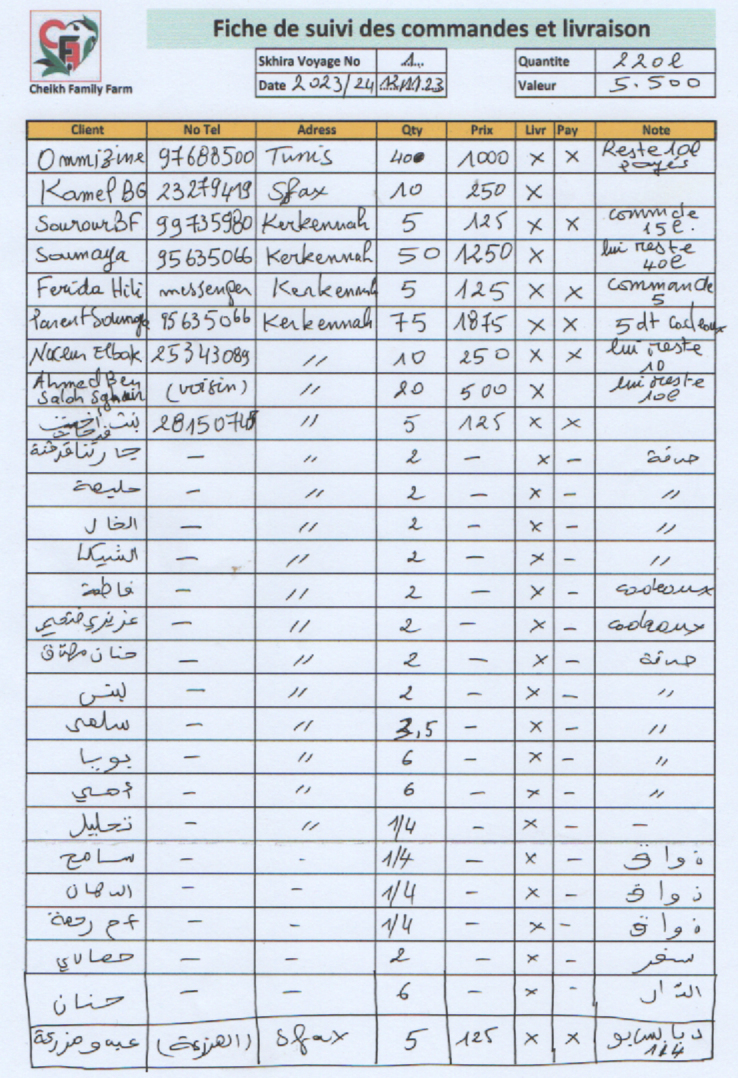 Fiche de suivi des commandes et livraison
Cheikh Family Farm
Skhira Voyage No 1... Quantite 220l
Date 2023/24 12.11.23 Valeur 5.500
Client No Tel Adress Qty Prix Livr Pay Note
Ommizine 97688500 Tunis 40 1000 x x Reste 10l payés
Kamel BG 23279419 Sfax 10 250 x
Sourour BF 99735980 Kerkennah 5 125 x x commde 15l.
Soumaya 95635066 Kerkennah 50 1250 x lui reste 40l
Ferida Hili messenger Kerkennah 5 125 x x Commande 5
Parent Soumaya 95635066 Kerkennah 75 1875 x x 5 dt cadeaux
Naceur Elbak 25343089 // 10 250 x x lui reste 10
Ahmed Ben Salah Sghaier (voisin) // 20 500 x lui reste 10l
بنت أخت فرحات 28150748 // 5 125 x x
جارتنا قرقنة – // 2 – x – صدقة
حليمة – // 2 – x – //
الخال – // 2 – x – //
– // 2 – x – //
فاطمة – // 2 – x – cadeaux
عزيزي فتحي – // 2 – x – cadeaux
حنان – // 2 – x – صدقة
– // 2 – x – //
سلمى – // 3,5 – x – //
بوبا – // 6 – x – //
أمي – // 6 – x – //
تحليل – // 1/4 – x – –
سامح – - 1/4 – x – ذواق
الدهان – – 1/4 – x – ذواق
أم رحمة – – 1/4 – x – ذواق
– – 2 – x – سفر
حنان – – 6 – x - الدار
Sfax 5 125 x x